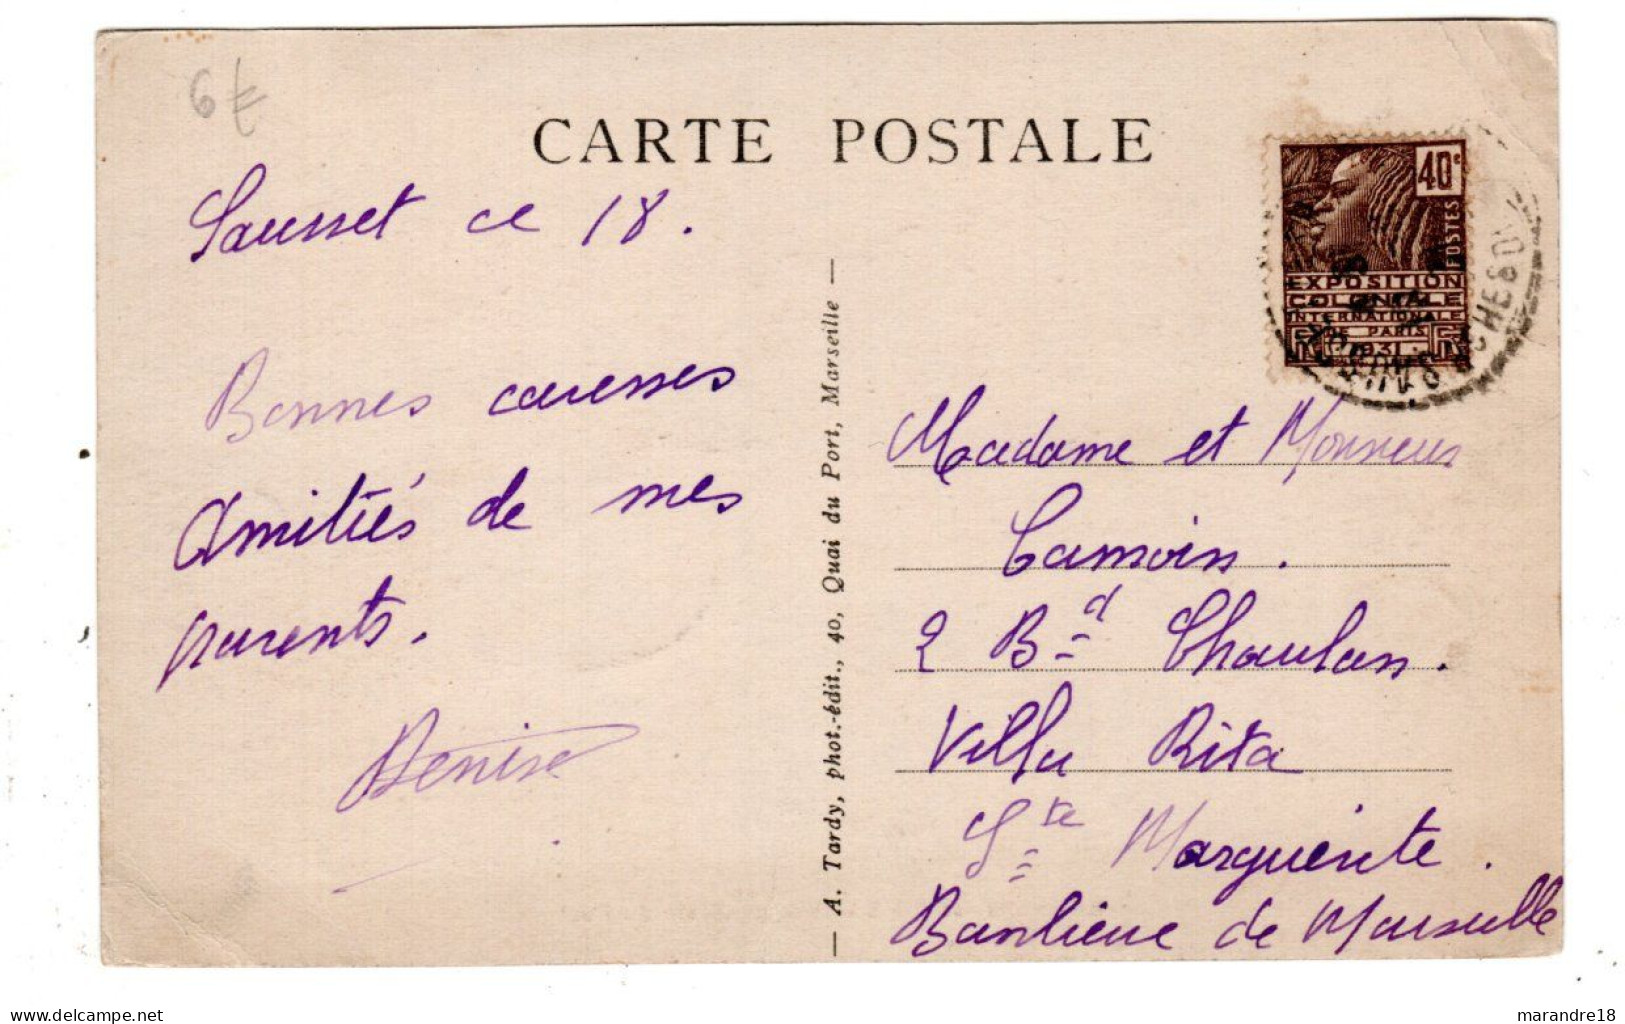 6 €
CARTE POSTALE
Sausset ce 18.
Bonnes caresses
Amitiés de mes
parents.
Denise
— A. Tardy, phot.-édit., 40, Quai du Port, Marseille —
40c
POSTES
EXPOSITION
COLONIALE
INTERNATIONALE
DE PARIS
1931
Madame et Monsieur
Camoin.
2 Bd Chaulan.
Villa Rita
Ste Marguerite.
Banlieue de Marseille
www.delcampe.net
marandre18